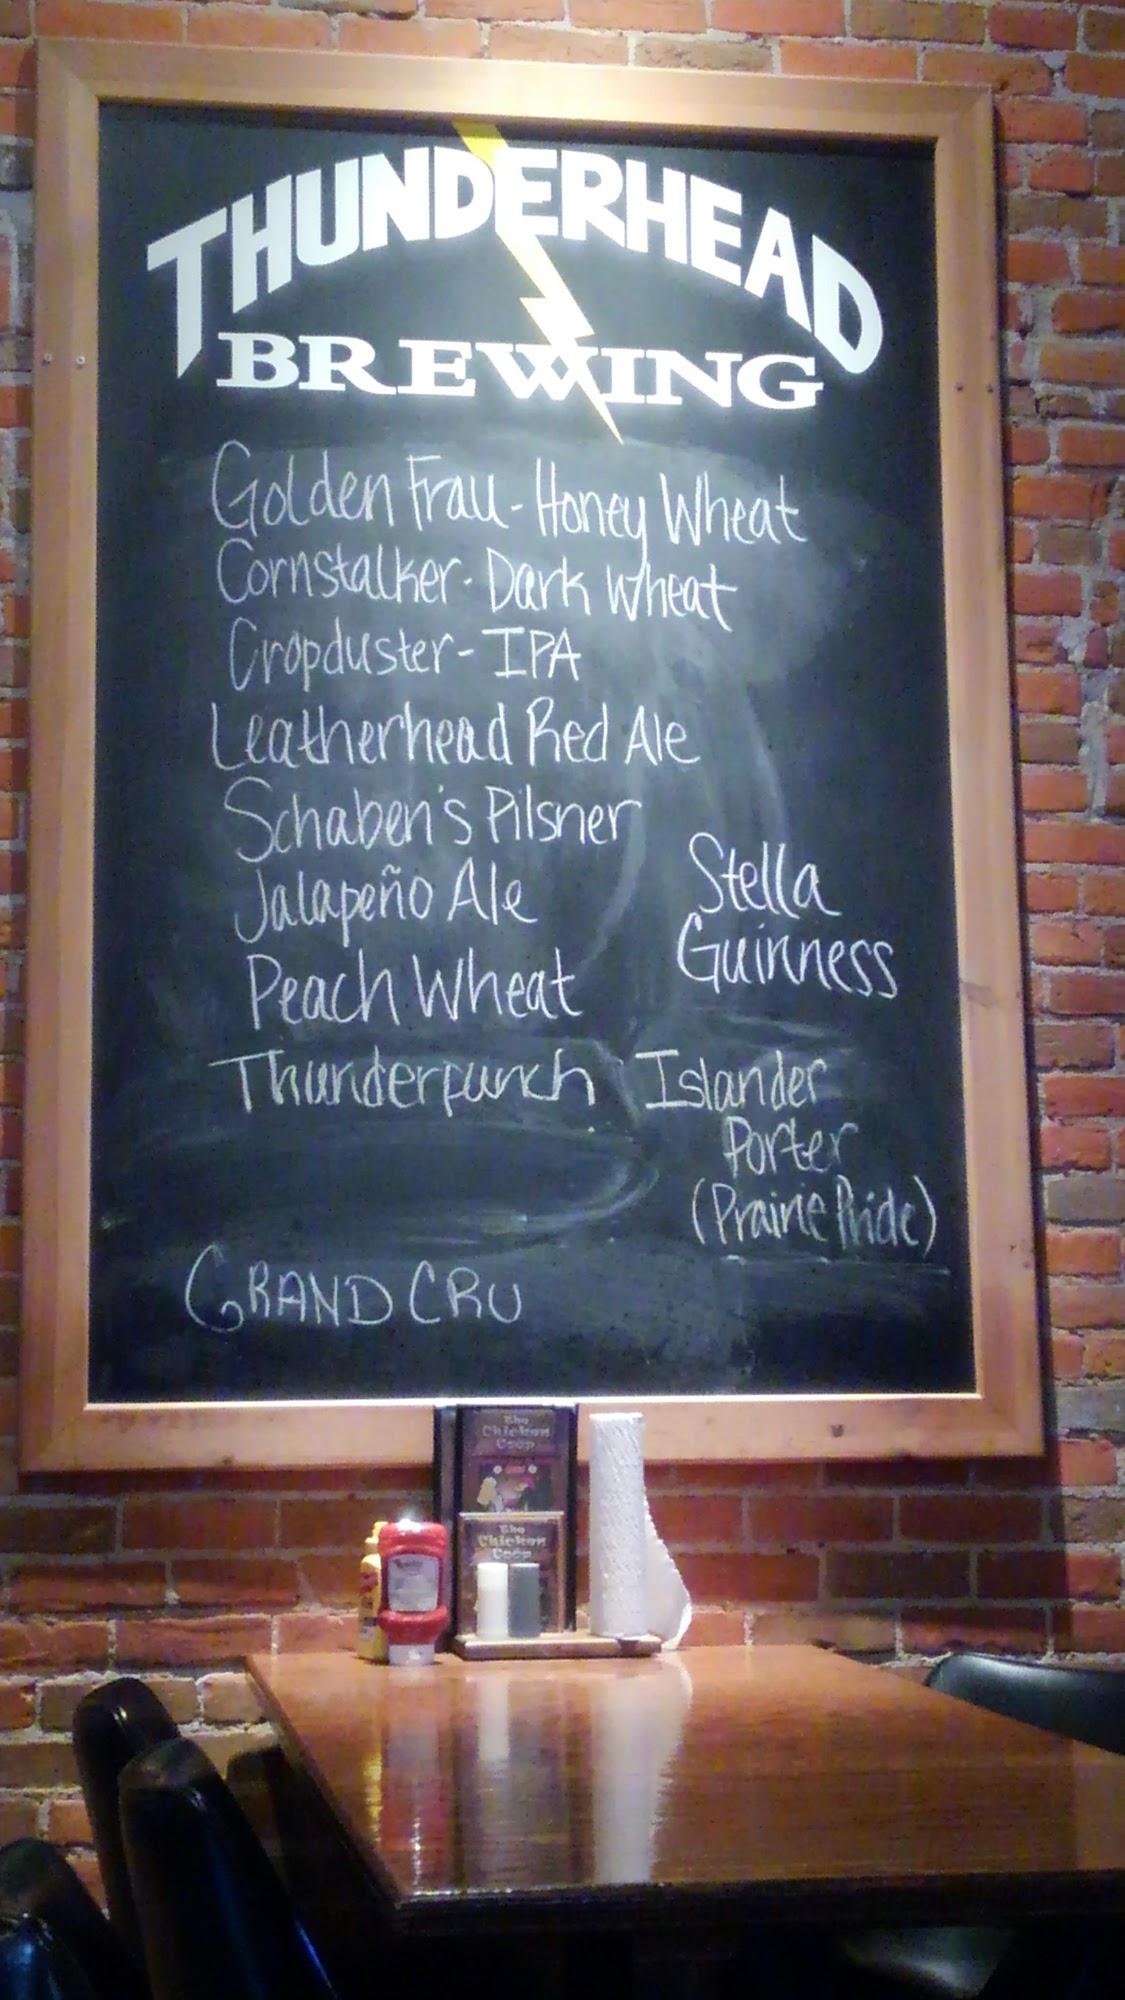 THUNDERHEAD
BREWING
Golden Frau - Honey Wheat
Cornstalker - Dark Wheat
Cropduster - IPA
Leatherhead Red Ale
Schaben's Pilsner
Jalapeño Ale
Peach Wheat
Thunderpunch
Stella
Guinness
Islander
Porter
(Prairie Pride)
GRAND CRU
The
Chicken
Coop
The
Chicken
Coop